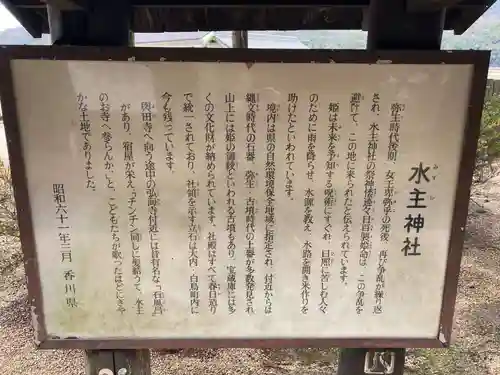 水主神社
弥生時代後期、女王卑弥呼の死後、再び争乱が繰り返
され、水主神社の祭神倭迹々日百襲姫命は、この争乱を
避けて、この地に来られたと伝えられています。
姫は未来を予知する呪術にすぐれ、日照に苦しむ人々
のために雨を降らせ、水源を教え、水路を開き米作りを
助けたといわれています。
境内は県の自然環境保全地域に指定され、付近からは
縄文時代の石器、弥生、古墳時代の土器が多数発見され、
山上には姫の御陵といわれる古墳もあり、宝蔵庫には多
くの文化財が納められています。社殿はすべて春日造り
で統一されており、社領を示す立石は大内、白鳥町内に
今も残っています。
與田寺へ向う途中の弘海寺付近には昔有名な「石風呂」
があり、宿屋が栄え、「チンチン同しに髪結うて、水主
のお寺へ参らんか。」と、こどもたちが歌ったほどにぎや
かな土地でありました。
昭和六十一年三月 香川県